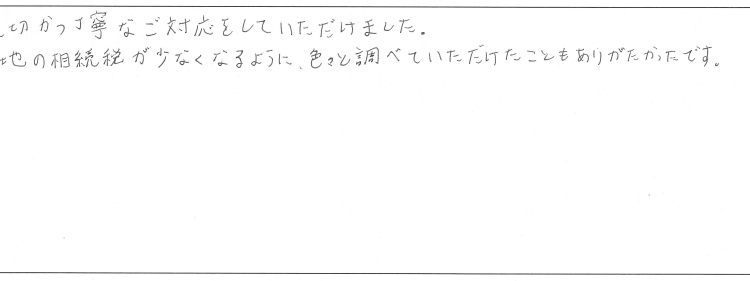 切かつ丁寧なご対応をしていただけました。
地の相続税が少なくなるように、色々と調べていただけたこともありがたかったです。